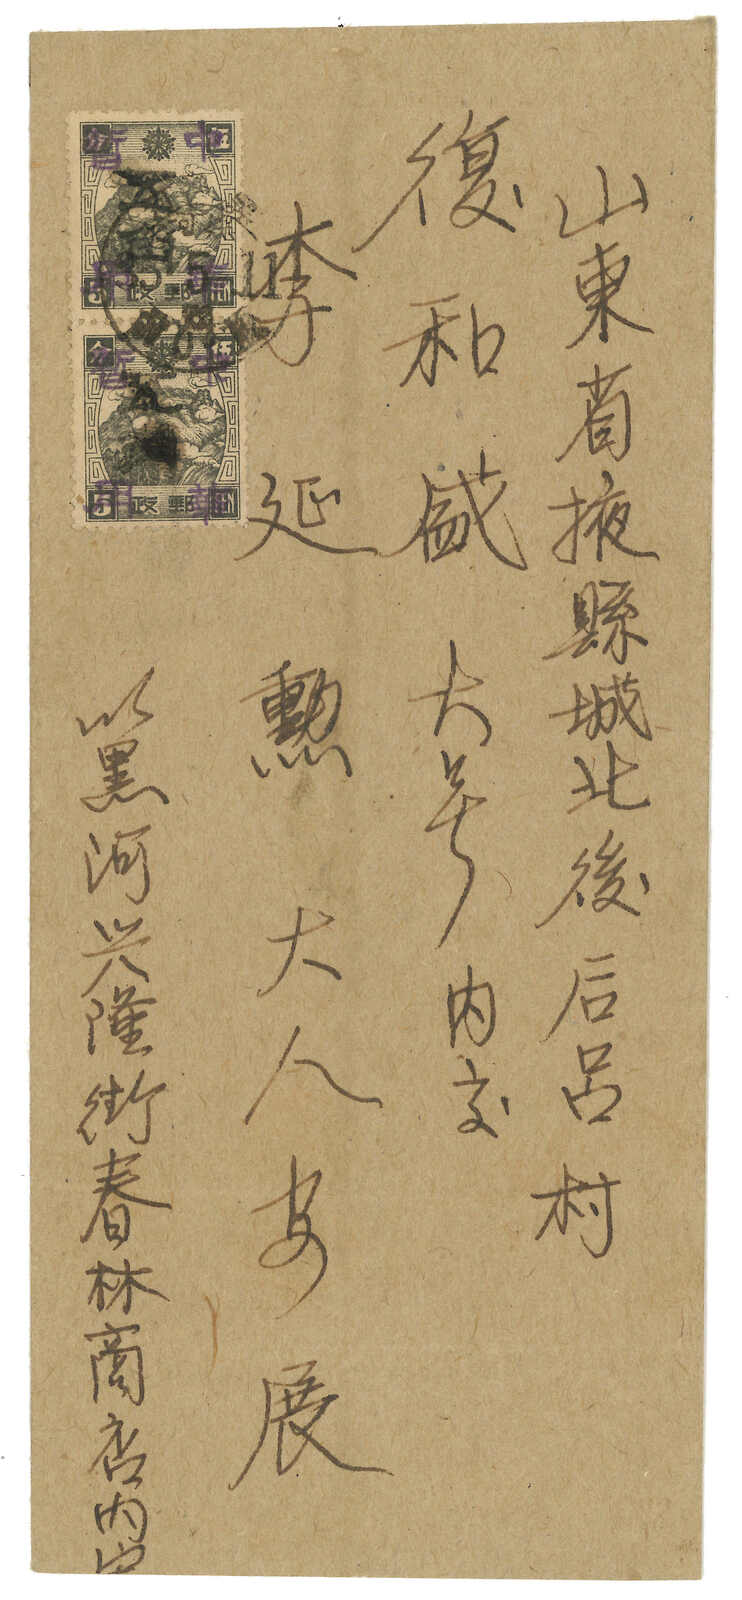 山東省掖縣城北後后呂村
復和盛大号內交
李延勳大人安展
以黑河兴隆街春林商店內
中華
暫用
五百
郵政
中華
暫用
五
郵政